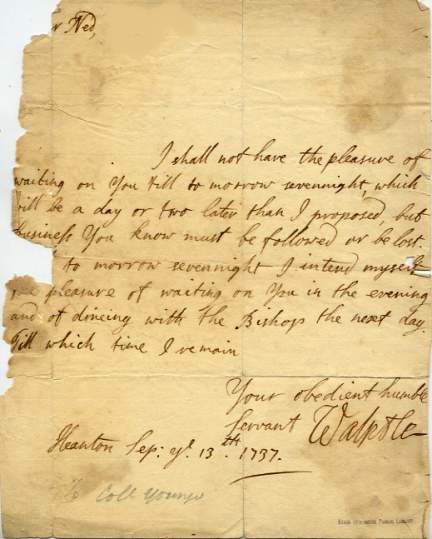 r Ned,
I shall not have the pleasure of
waiting on You till to morrow sevennight, which
will be a day or two later than I proposed, but
business You know must be followed or be lost.
to morrow sevennight I intend myself
the pleasure of waiting on You in the evening
and of dineing with the Bishop the next day.
Till which time I remain
Your obedient humble
Servant Walpole
Heanton Sep: ye. 13th. 1737.
To Coll Younge
PUBLIC LIBRARY